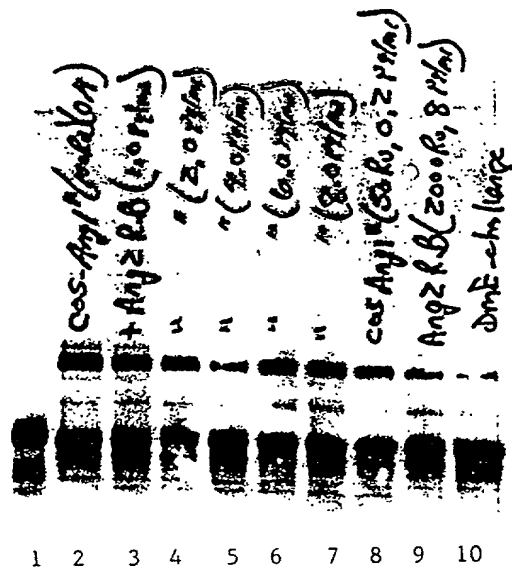 cos-Ang1*
+ Ang2 RB (1.0 μg/ml)
" (2.0 μg/ml)
" (4.0 μg/ml)
" (6.0 μg/ml)
" (8.0 μg/ml)
cos Ang1* (50 RU, 0.2 μg/ml)
Ang2 RB (2000 RU, 8 μg/ml)
DME-challenge
1 2 3 4 5 6 7 8 9 10